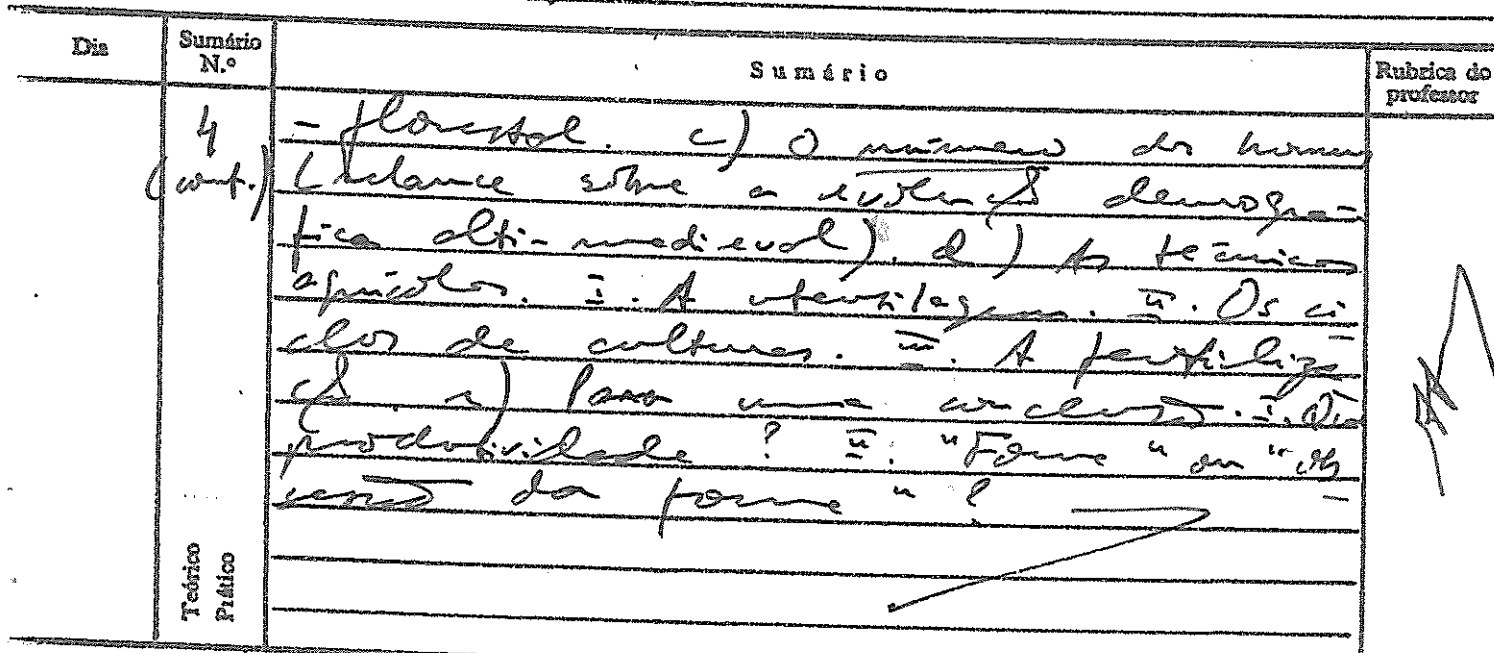 Dia
Sumário N.º
Sumário
Rubrica do professor
4 (cont.)
- florestal. c) O número dos homens
(relance sôbre a evolução demográ-
fica alti-medieval). d) As técnicas
agrícolas. I. A utensilagem. II. Os ci-
clos de culturas. III. A fertiliza-
ção. e) Para uma conclusão. I. Que
produtividade? II. "Fome" ou "ob-
sessão da fome"?
Teórico
Prático